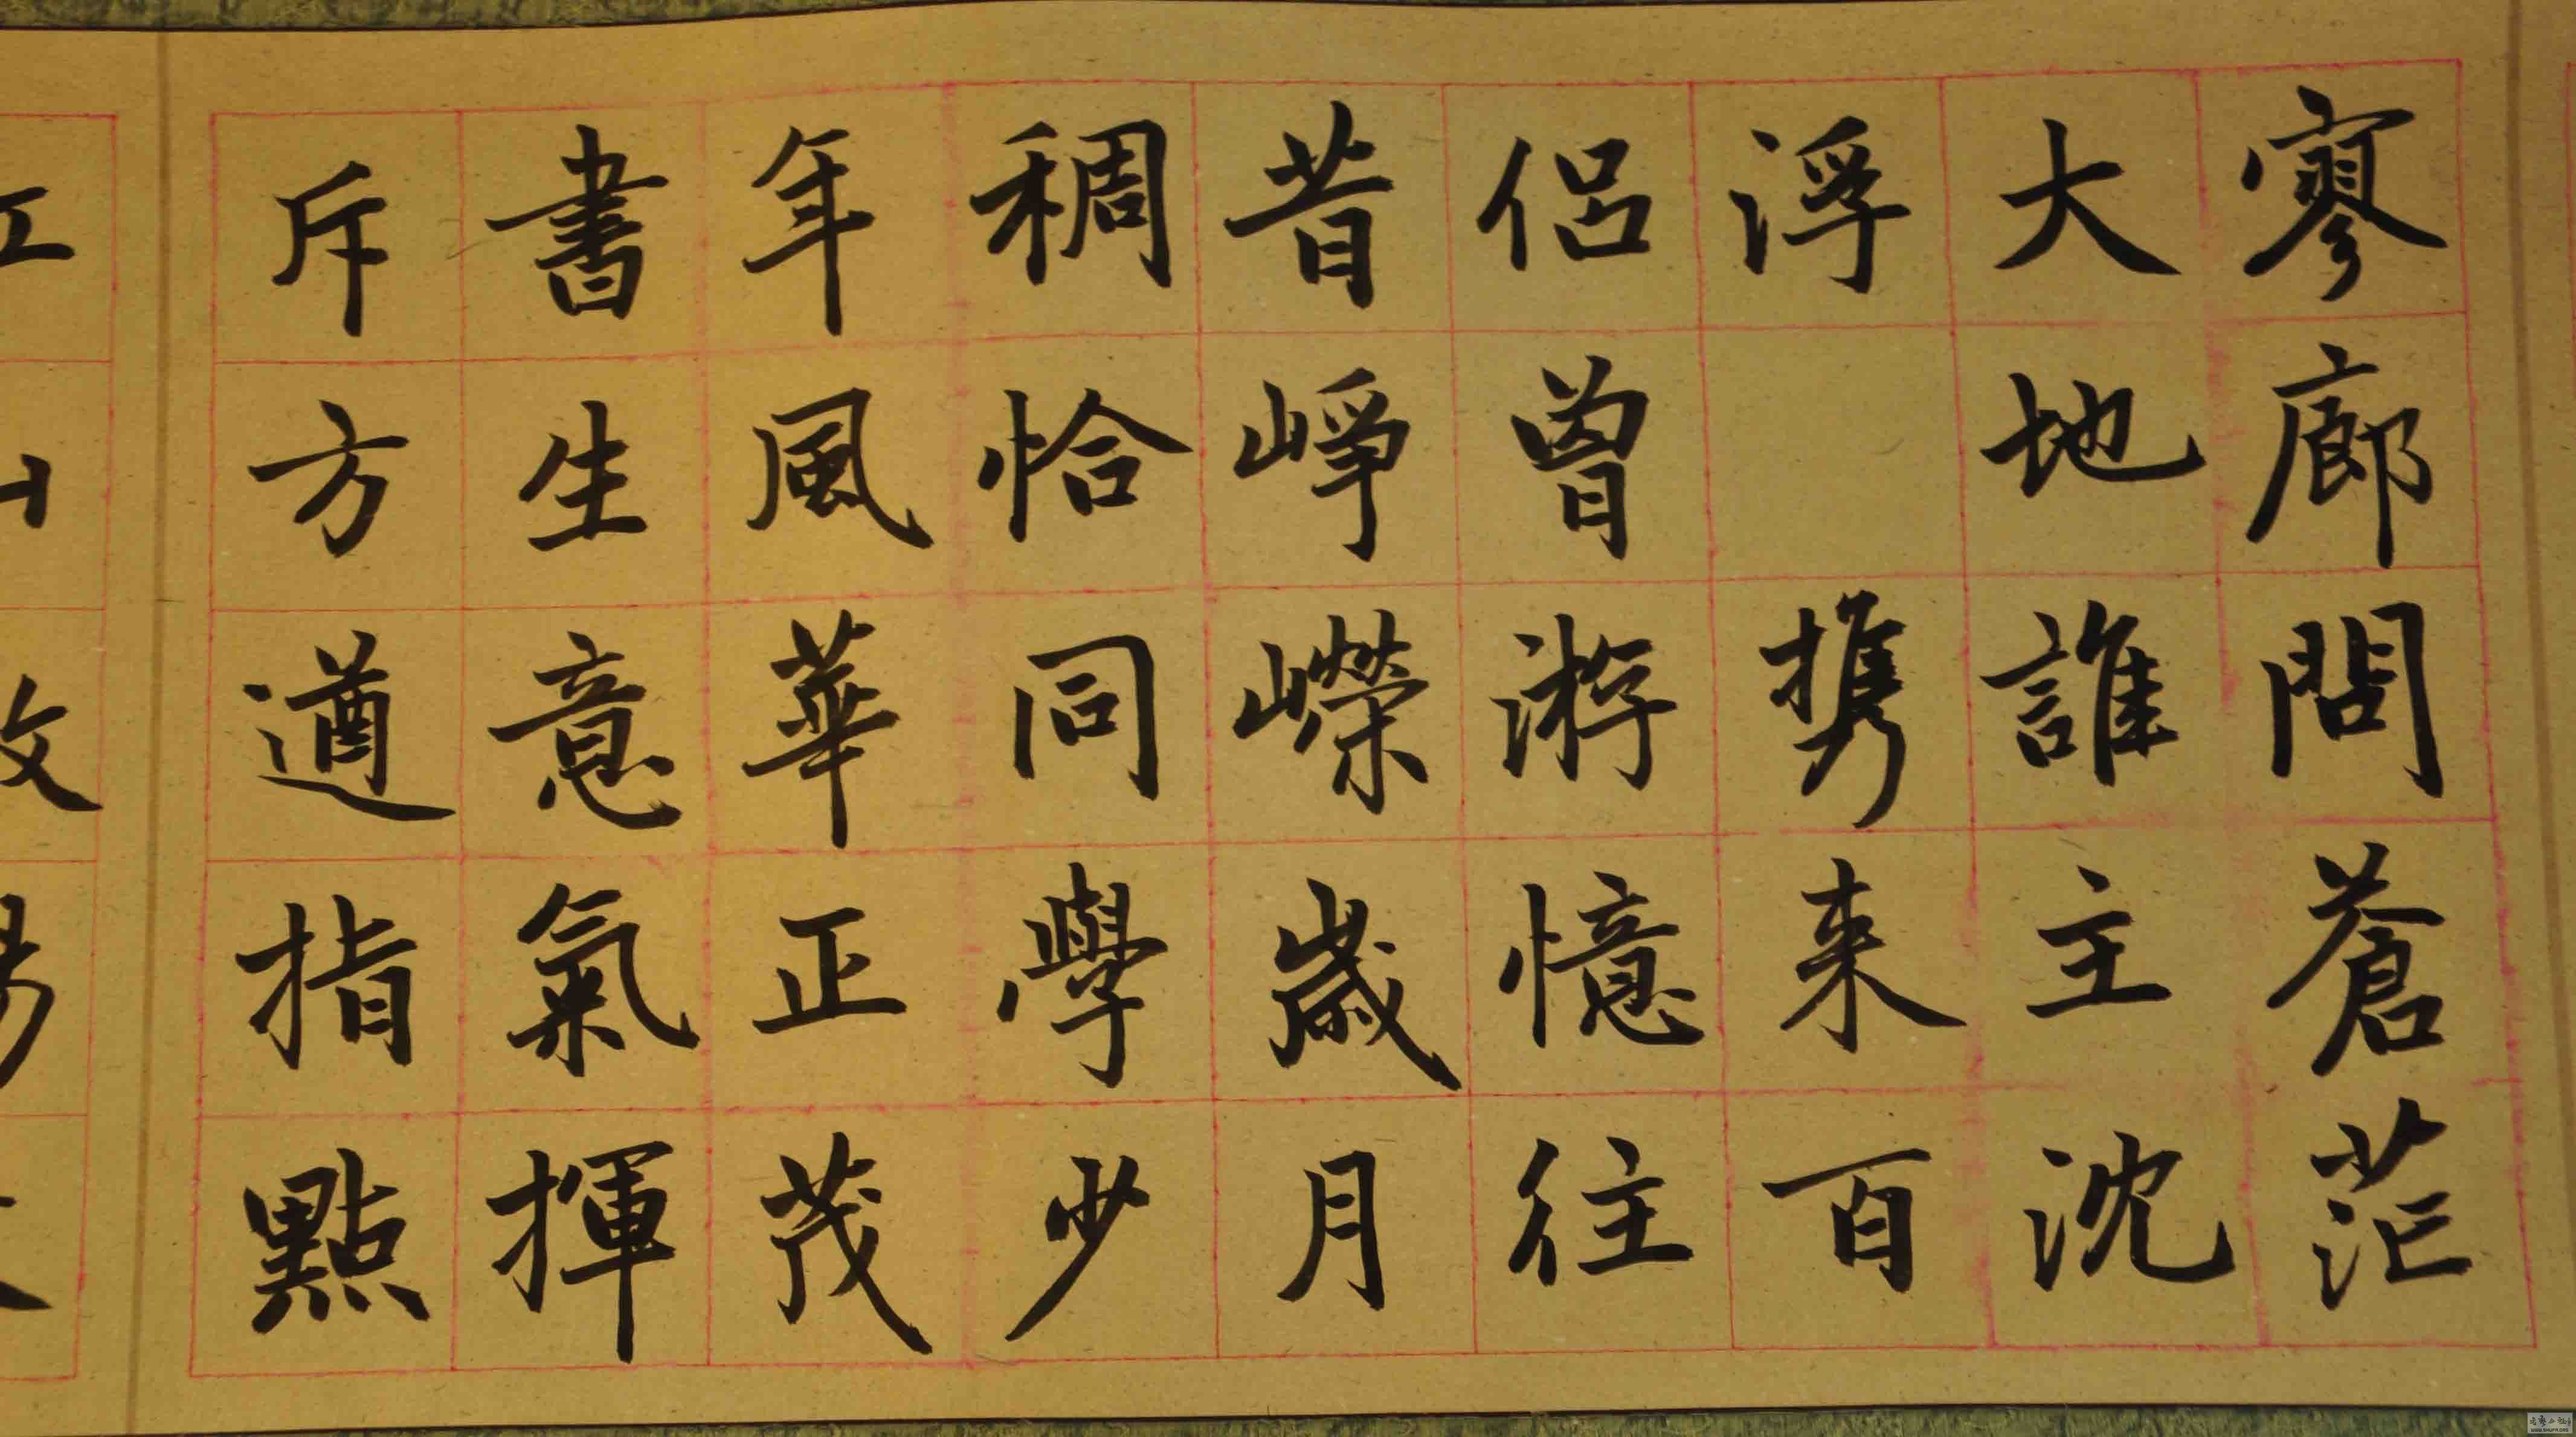 寥廊問蒼茫
大地誰主沈
浮携来百
侶曾游憶往
昔崢嶸歲月
稠恰同學少
年風華正茂
書生意氣揮
斥方遒指點
江山